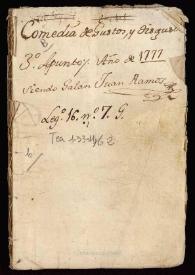 Comedia de Gustos, y disgus
3.º Apunto, Año de 1777
siendo Galan Juan Ramos
Leg.º 16. n.º 7. G.
Tea 1-33-116, 2